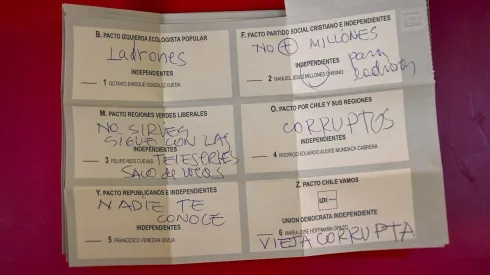 B. PACTO IZQUIERDA ECOLOGISTA POPULAR
Ladrones
INDEPENDIENTES
1 OCTAVIO ENRIQUE GONZALEZ OJEDA
F. PACTO PARTIDO SOCIAL CRISTIANO E INDEPENDIENTES
NO + MILLONES
para
INDEPENDIENTES
ladrones
2 MANUEL JESUS MILLONES CHIRINO
M. PACTO REGIONES VERDES LIBERALES
NO SIRVES
SIGUE CON LAS
INDEPENDIENTES
TELESERIES
3 FELIPE RIOS CUEVAS
SACO DE
O. PACTO POR CHILE Y SUS REGIONES
CORRUPTOS
INDEPENDIENTES
4 RODRIGO EDUARDO ALEXIS MUNDACA CABRERA
Y. PACTO REPUBLICANOS E INDEPENDIENTES
NADIE TE
CONOCE
INDEPENDIENTES
5 FRANCESCO VENEZIAN URZUA
Z. PACTO CHILE VAMOS
UDI
UNION DEMOCRATA INDEPENDIENTE
6 MARIA JOSE HOFFMANN OPAZO
VIEJA CORRUPTA